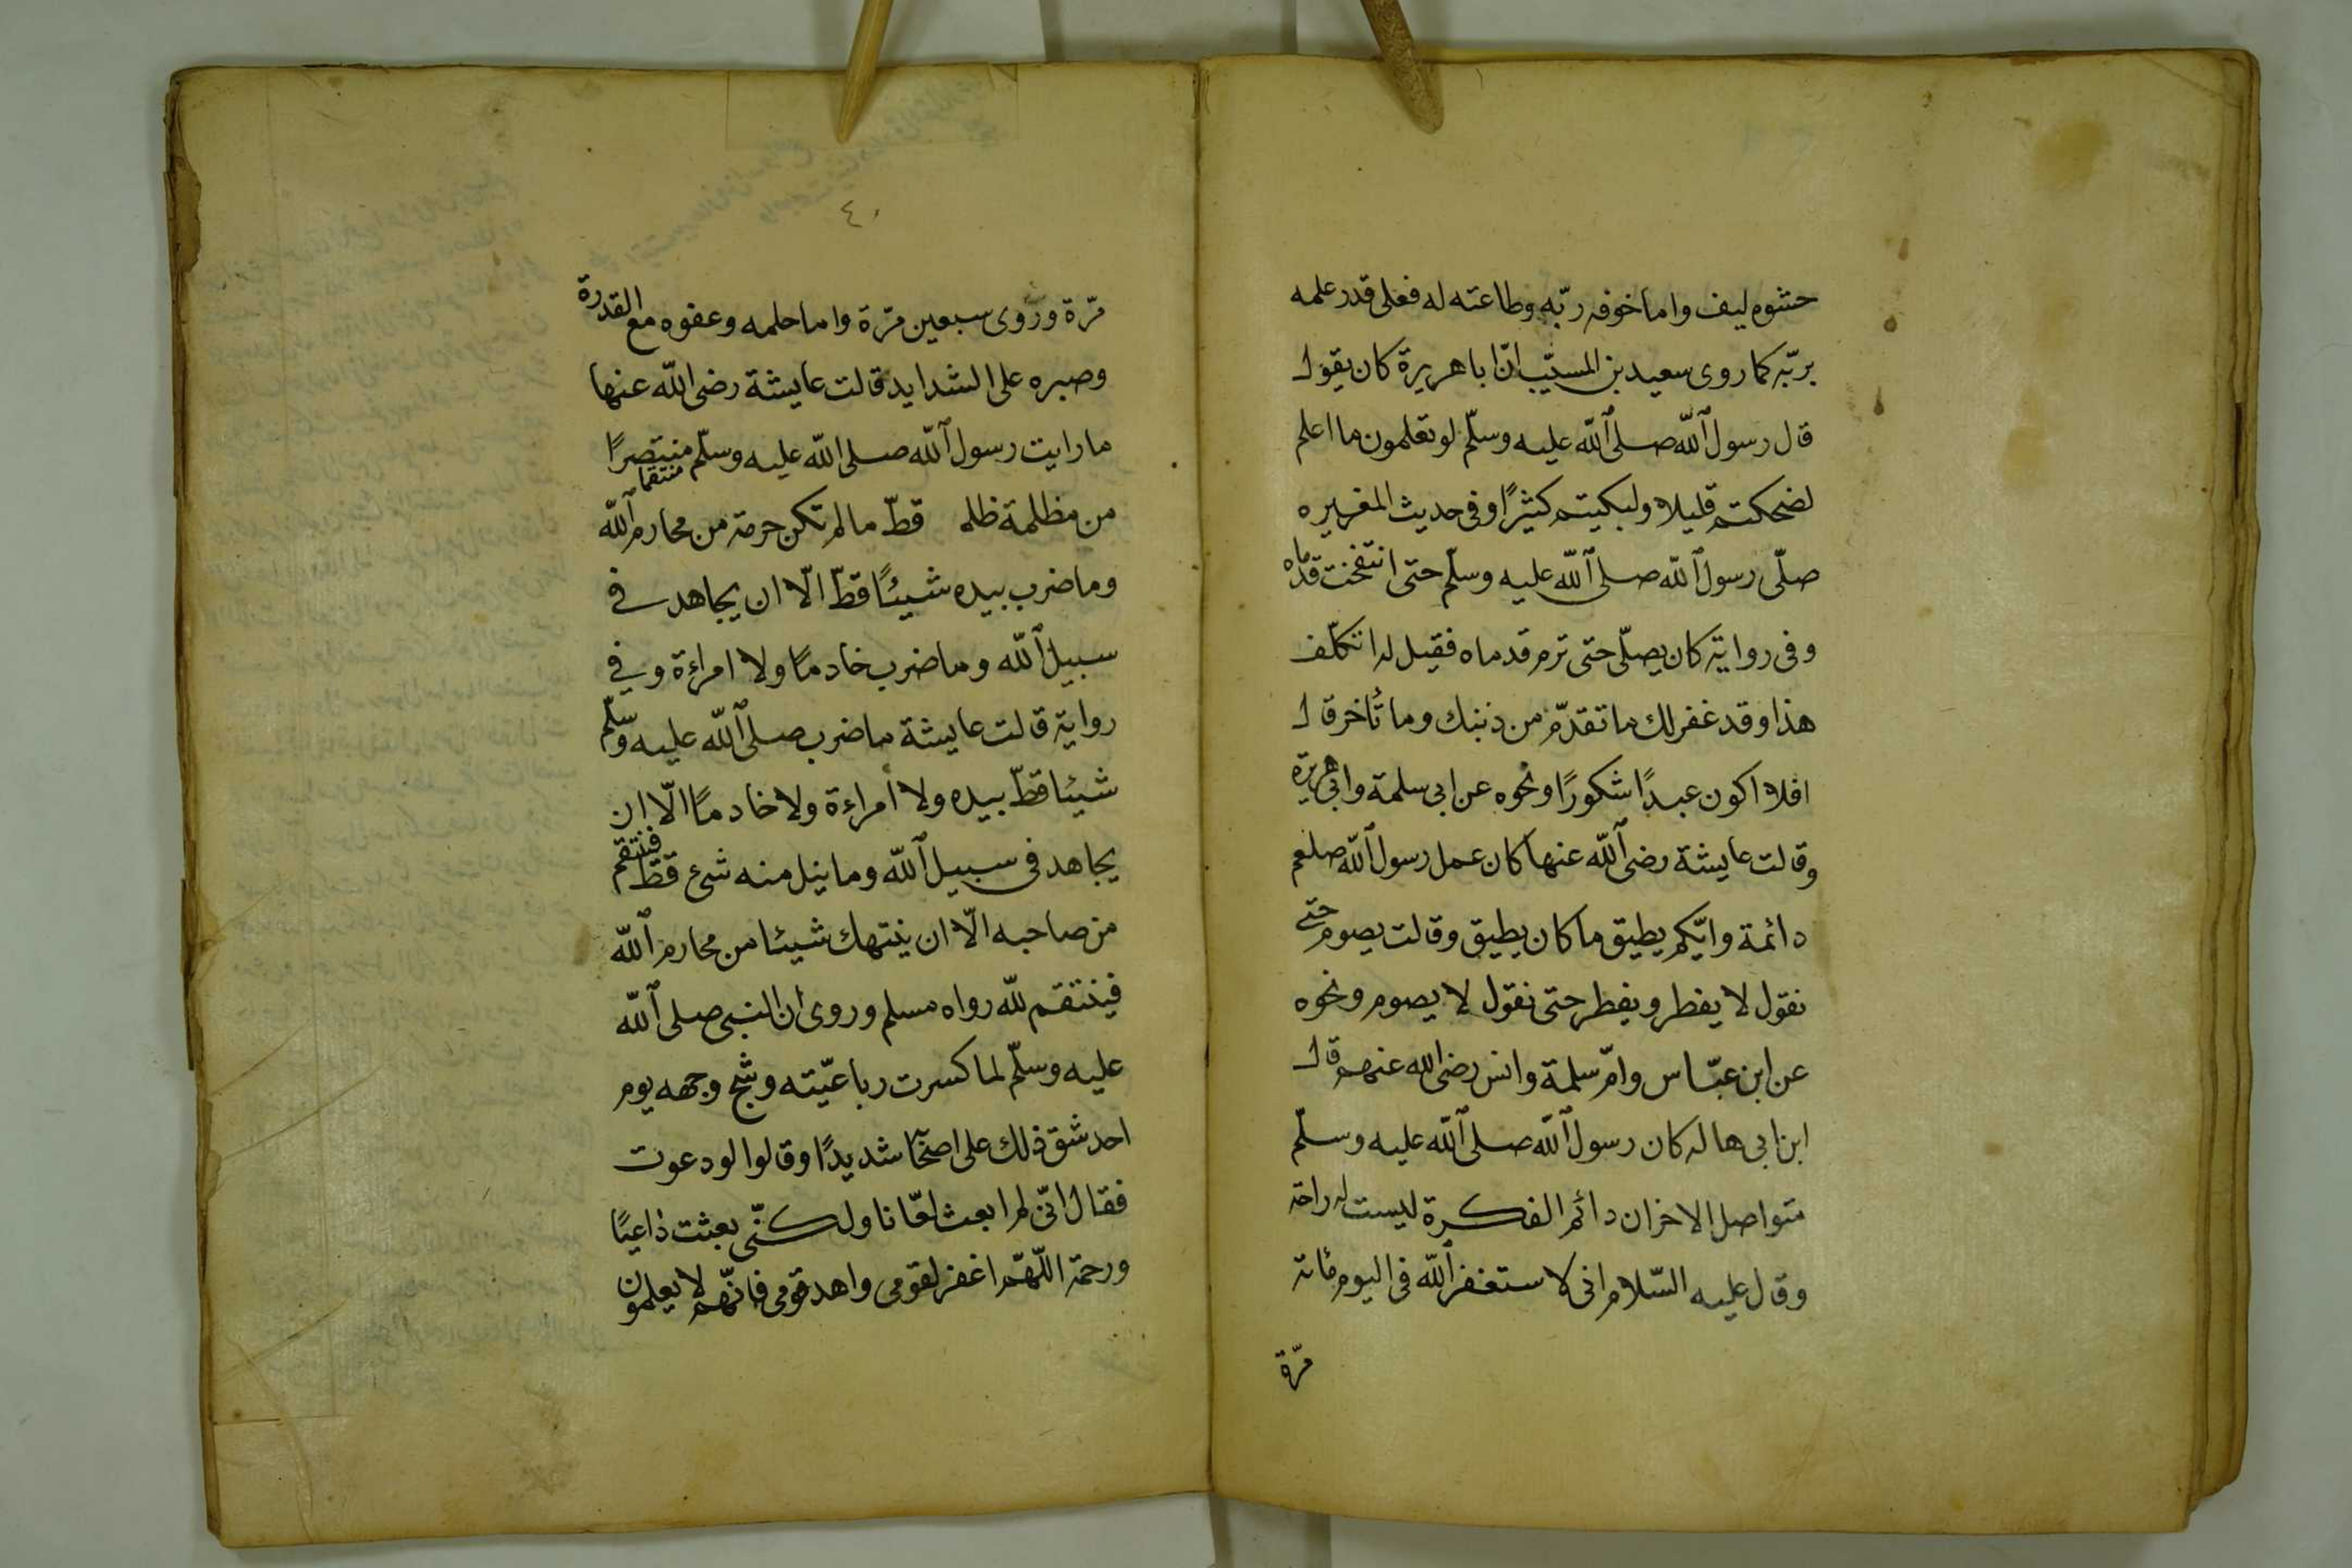 حشوه ليف واما خوفه ربّه وطاعته له فعلى قدر علمه
بربّه كما روى سعيد بن المسيّب انّ ابا هريرة كان يقول
قال رسول الله صلى الله عليه وسلّم لو تعلمون ما اعلم
لضحكتم قليلا ولبكيتم كثيرًا وفى حديث المغيره
صلّى رسول الله صلى الله عليه وسلّم حتى انتفخت قدماه
وفى رواية كان يصلّى حتى ترم قدماه فقيل له اتكلّف
هذا وقد غفر لك ما تقدّم من ذنبك وما تأخر قال
افلا اكون عبدًا شكورًا ونحوه عن ابى سلمة وابى هريرة
وقالت عايشة رضى الله عنها كان عمل رسول الله صلعم
دائمة وايّكم يطيق ما كان يطيق وقالت يصوم حتى
نقول لا يفطر ويفطر حتى نقول لا يصوم ونحوه
عن ابن عبّاس وامّ سلمة وانس رضى الله عنهم قال
ابن ابى هاله كان رسول الله صلى الله عليه وسلّم
متواصل الاخزان دائم الفكرة ليست له راحة
وقال عليه السّلام انى لاستغفر الله فى اليوم مائة
مرّة
٤٠
مرّة وروى سبعين مرّة واما حلمه وعفوه مع القدرة
وصبره على الشدايد قالت عايشة رضى الله عنها
ما رايت رسول الله صلى الله عليه وسلّم منتصرًا
منتقما
من مظلمة ظلم قطّ ما لم تكن حرمة من محارم الله
وما ضرب بيده شيئًا قطّ الّا ان يجاهد فى
سبيل الله وما ضرب خادمًا ولا امراءة وفى
رواية قالت عايشة ما ضرب صلى الله عليه وسلّم
شيئا قطّ بيده ولا امراءة ولا خادمًا الّا ان
يجاهد فى سبيل الله وما نيل منه شىء قطّ فينتقم
من صاحبه الّا ان ينتهك شيئا من محارم الله
فينتقم لله رواه مسلم وروى ان النبى صلى الله
عليه وسلّم لما كسرت رباعيّته وشجّ وجهه يوم
احد شقّ ذلك على اصحابه شديدًا وقالوا لو دعوت
فقال انّى لم ابعث لعّانا ولكنّى بعثت داعيًا
ورحمة اللّهمّ اغفر لقومى واهد قومى فانّهم لا يعلمون